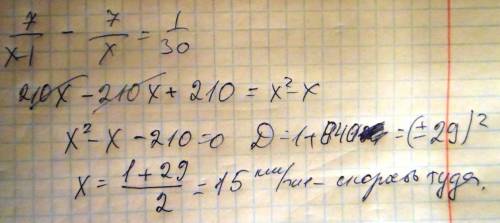 7/(x-1) - 7/x = 1/30
210x - 210x + 210 = x² - x
x² - x - 210 = 0 D = 1 + 840 = (±29)²
x = (1 + 29)/2 = 15 км/час - скорость туда.